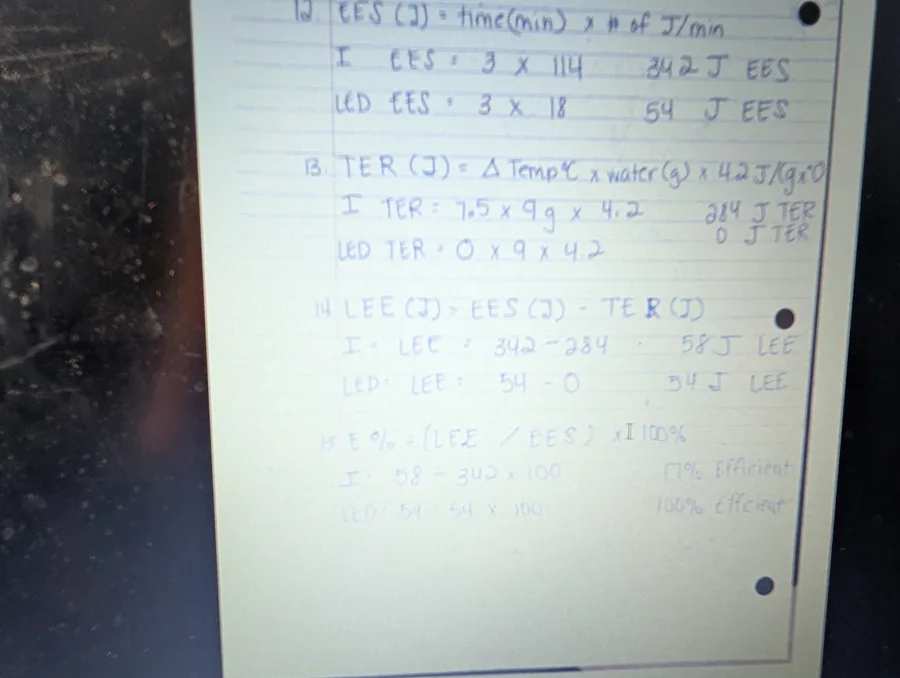 12 EES (J) = time(min) x # of J/min
I EES = 3 x 114 342 J EES
LED EES = 3 x 18 54 J EES
13. TER (J) = Δ Temp°C x water (g) x 4.2 J/(gx°C)
I TER = 7.5 x 9g x 4.2 284 J TER
LED TER = 0 x 9 x 4.2 0 J TER
14 LEE (J) = EES (J) - TER (J)
I : LEE = 342 - 284 58 J LEE
LED: LEE = 54 - 0 54 J LEE
15 E % = (LEE / EES) x 100%
I: 58 ÷ 342 x 100 17% Efficient
LED: 54 ÷ 54 x 100 100% Efficient